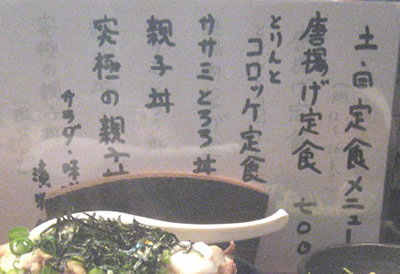 土・日定食メニュー
唐揚げ定食 七〇〇
とりんと
コロッケ定食
ササミとろろ丼
親子丼
究極の親子丼
サラダ・味
漬物